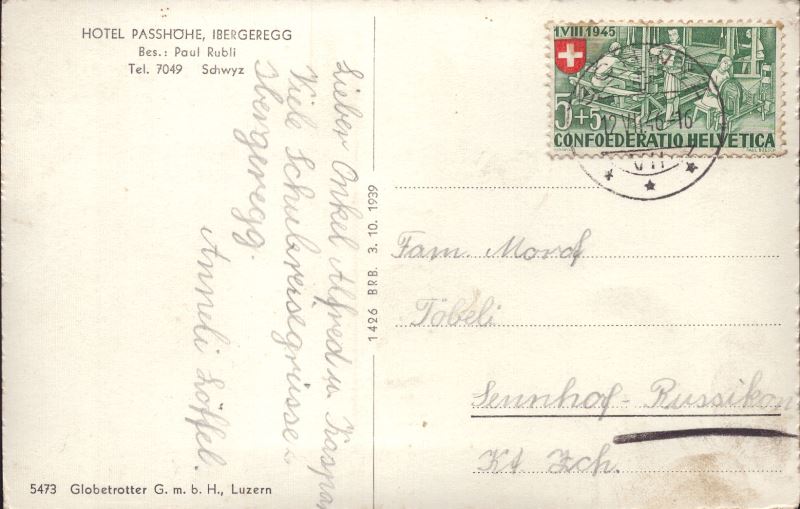 HOTEL PASSHÖHE, IBERGEREGG
Bes.: Paul Rubli
Tel. 7049 Schwyz
Lieber Onkel Alfred u. Kaspar
Viele Schulreisegrüsse
Ibergeregg.
Anneli Löffel.
5473 Globetrotter G. m. b. H., Luzern
1426 BRB. 3. 10. 1939
1 VIII 1945
5+5
CONFOEDERATIO HELVETICA
12.VII.46-16
Fam. Morf
Töbeli
Sennhof-Russikon
Kt Zch.